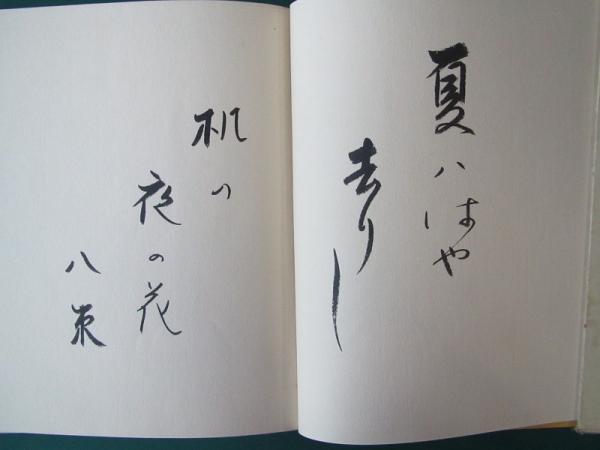 夏ハはや
去りし
机の
夜の花
八束